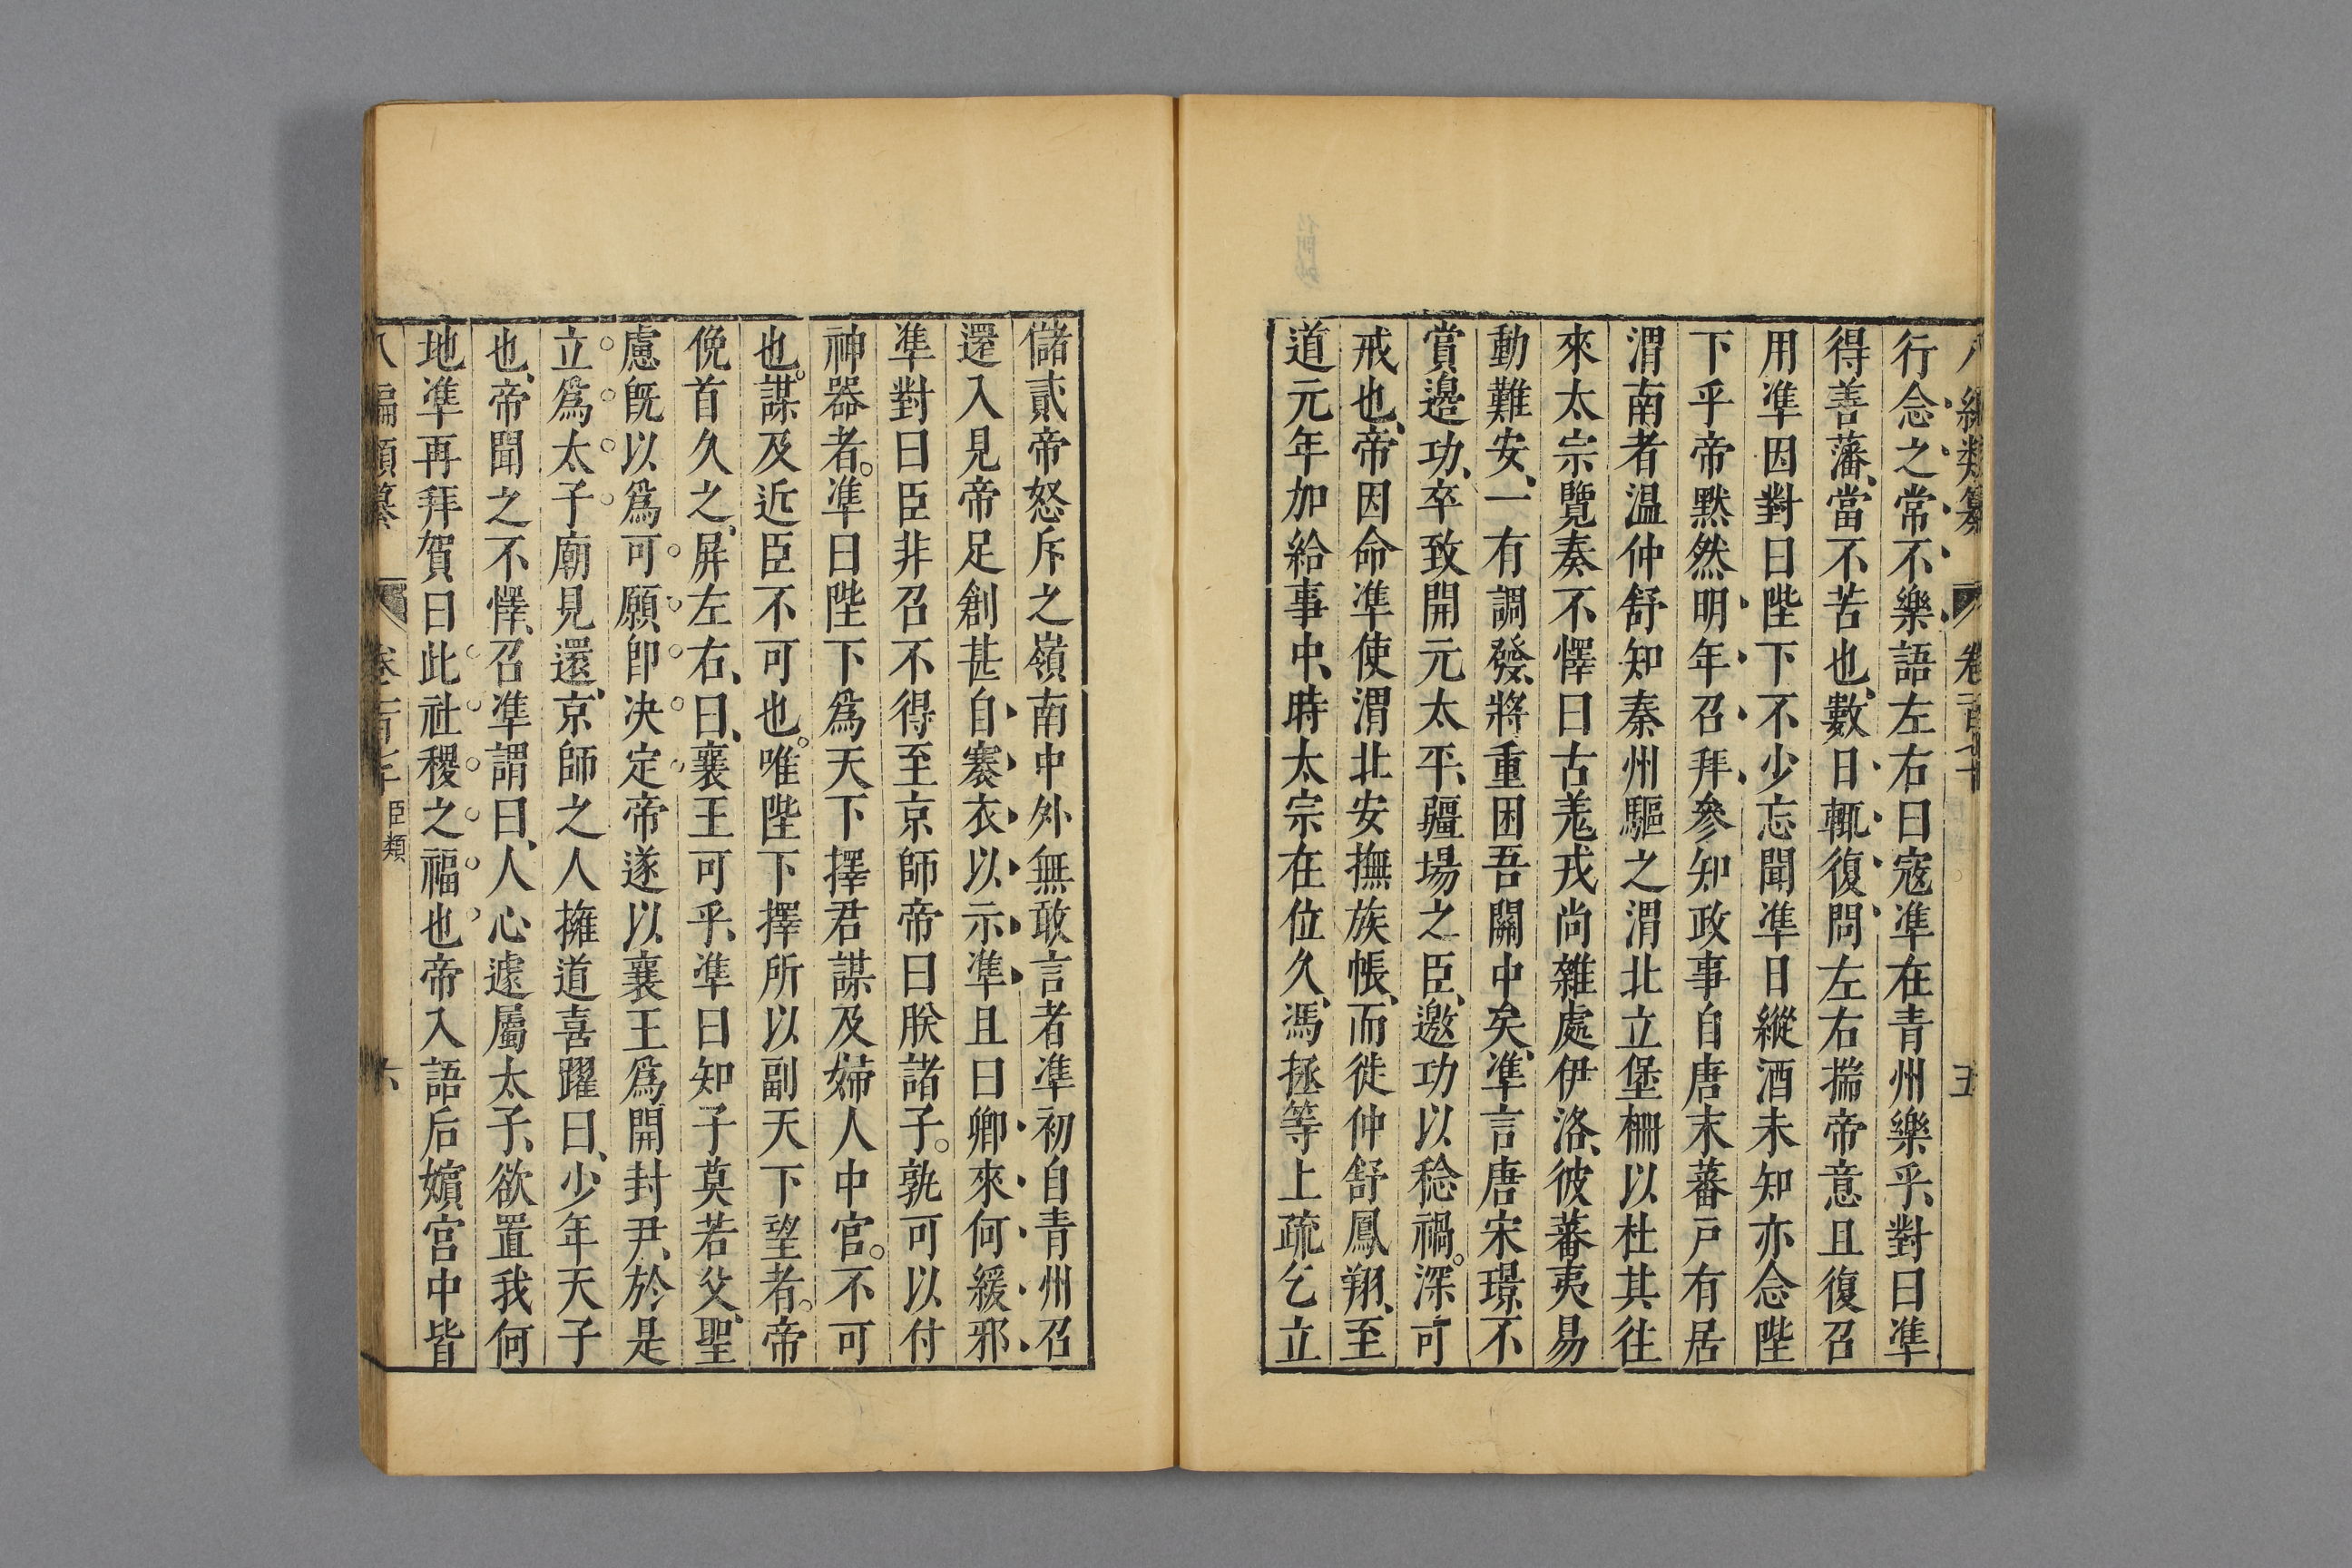 行念之常不樂語左右曰寇準在青州樂乎、對曰準
得善藩、當不苦也、數日輒復問左右揣帝意且復召
用準因對曰陛下不少忘聞準日縱酒未知亦念陛
下乎帝默然明年召拜參知政事自唐末蕃戸有居
渭南者温仲舒知秦州驅之渭北立堡柵以杜其往
來太宗覽奏不懌曰古羗戎尚雜處伊洛、彼蕃夷易
動難安、一有調發、將重困吾關中矣、準言唐宋璟不
賞邊功、卒致開元太平、疆場之臣、邀功以稔禍。深可
戒也、帝因命準使渭北安撫族帳、而徙仲舒鳳翔、至
道元年加給事中、時太宗在位久、馮拯等上疏乞立
儲貳帝怒斥之嶺南中外無敢言者準初自青州召
還入見帝足創甚自褰衣以示準且曰卿來何緩邪
準對曰臣非召不得至京師帝曰朕諸子。孰可以付
神器者。準曰陛下爲天下擇君謀及婦人中官。不可
也。謀及近臣不可也。唯陛下擇所以副天下望者。帝
俛首久之、屏左右、曰、襄王可乎、準曰知子莫若父、聖
慮旣以爲可願卽决定帝遂以襄王爲開封尹、於是
立爲太子廟見還、京師之人擁道喜躍曰、少年天子
也、帝聞之不懌、召準謂曰、人心遽屬太子、欲置我何
地準再拜賀曰此社稷之福也帝入語后嬪宮中皆